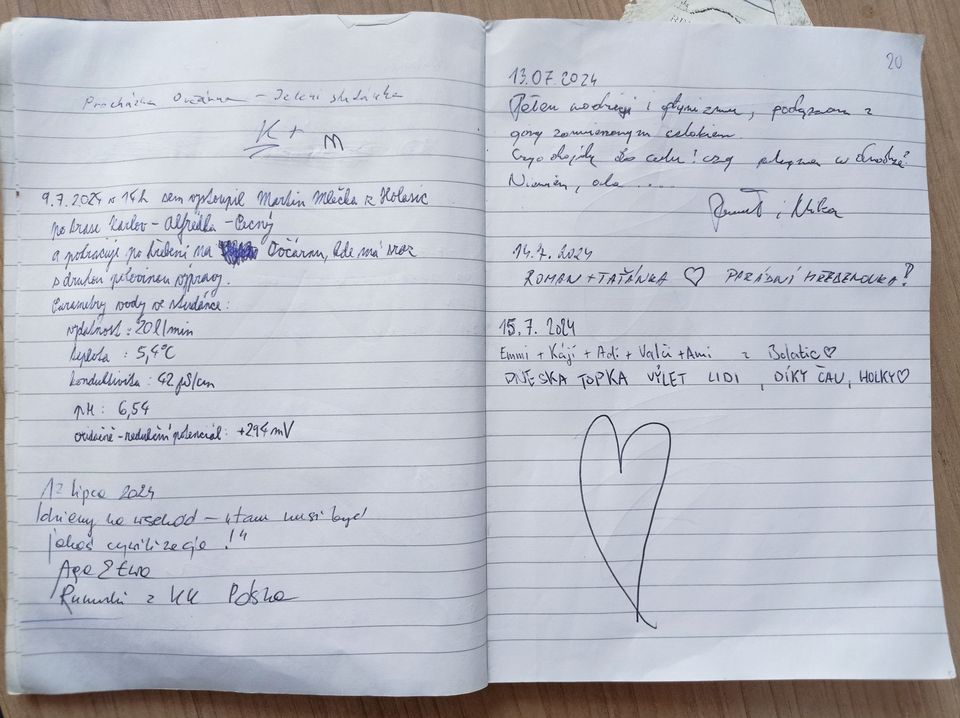 Procházka Ovčárna - Jelení studánka
K + M
9.7.2024 v 14h sem vystoupil Martin Mlečka z Holasic
po trase Karlov - Alfrédka - Pecný
a pokračuje po hřebeni na Ovčárnu, kde má sraz
s druhou polovinou výpravy.
Parametry vody ve studánce:
vydatnost : 20 l/min
teplota : 5,4°C
konduktivita : 42 µS/cm
pH : 6,54
oxidačně-redukční potenciál : +294 mV
12 lipca 2024
Idziemy na wschód - "tam musi być
jakaś cywilizacja!"
Aga & Ewa
z KK Polska
20
13.07.2024
Pełen i
góry
Czy dojdę do celu! czy w
Nie wiem, ale ....
i
14.7.2024
ROMAN + TAŤÁNKA ♡ PARÁDNÍ HŘEBENOVKA!
15.7.2024
Emmi + Kájí + Adi + Valči + Ami z Bolatic ♡
DNESKA TOPKA VÝLET LIDI, DÍKY ČAU, HOLKY ♡